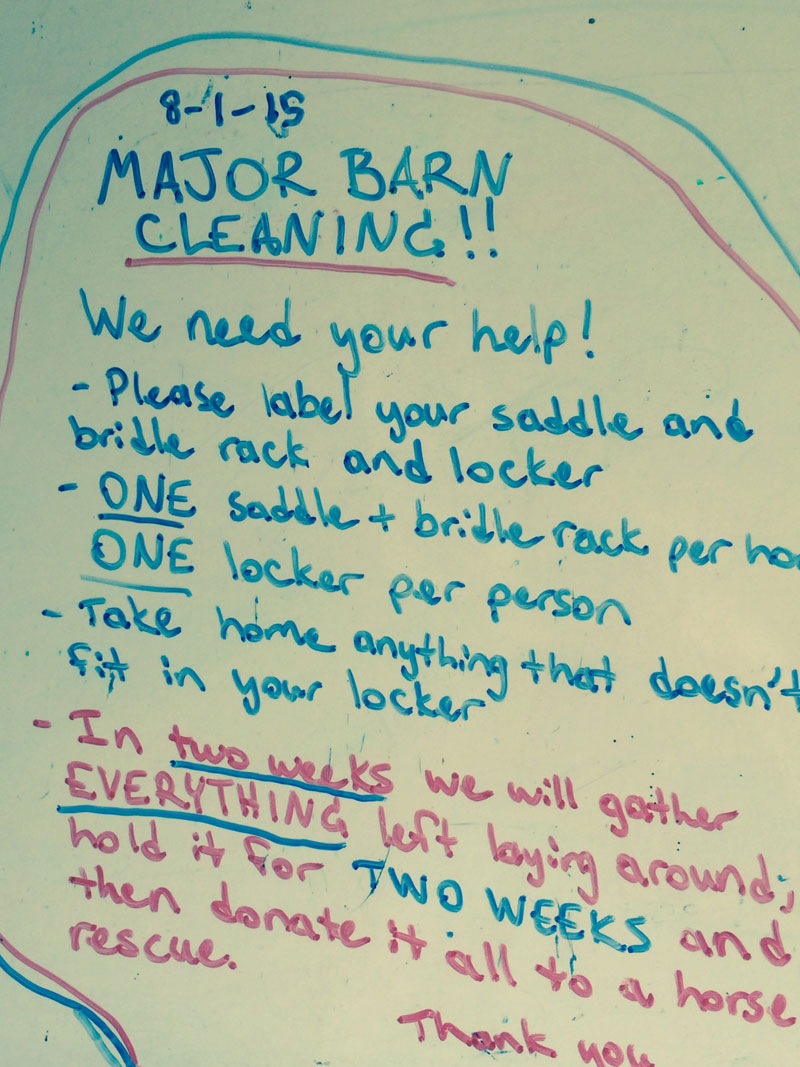 8-1-15
MAJOR BARN
CLEANING!!
We need your help!
- Please label your saddle and
bridle rack and locker
- ONE saddle + bridle rack per ho
ONE locker per person
- Take home anything that doesn't
fit in your locker
- In two weeks we will gather
EVERYTHING left laying around;
hold it for TWO WEEKS and
then donate it all to a horse
rescue.
Thank you